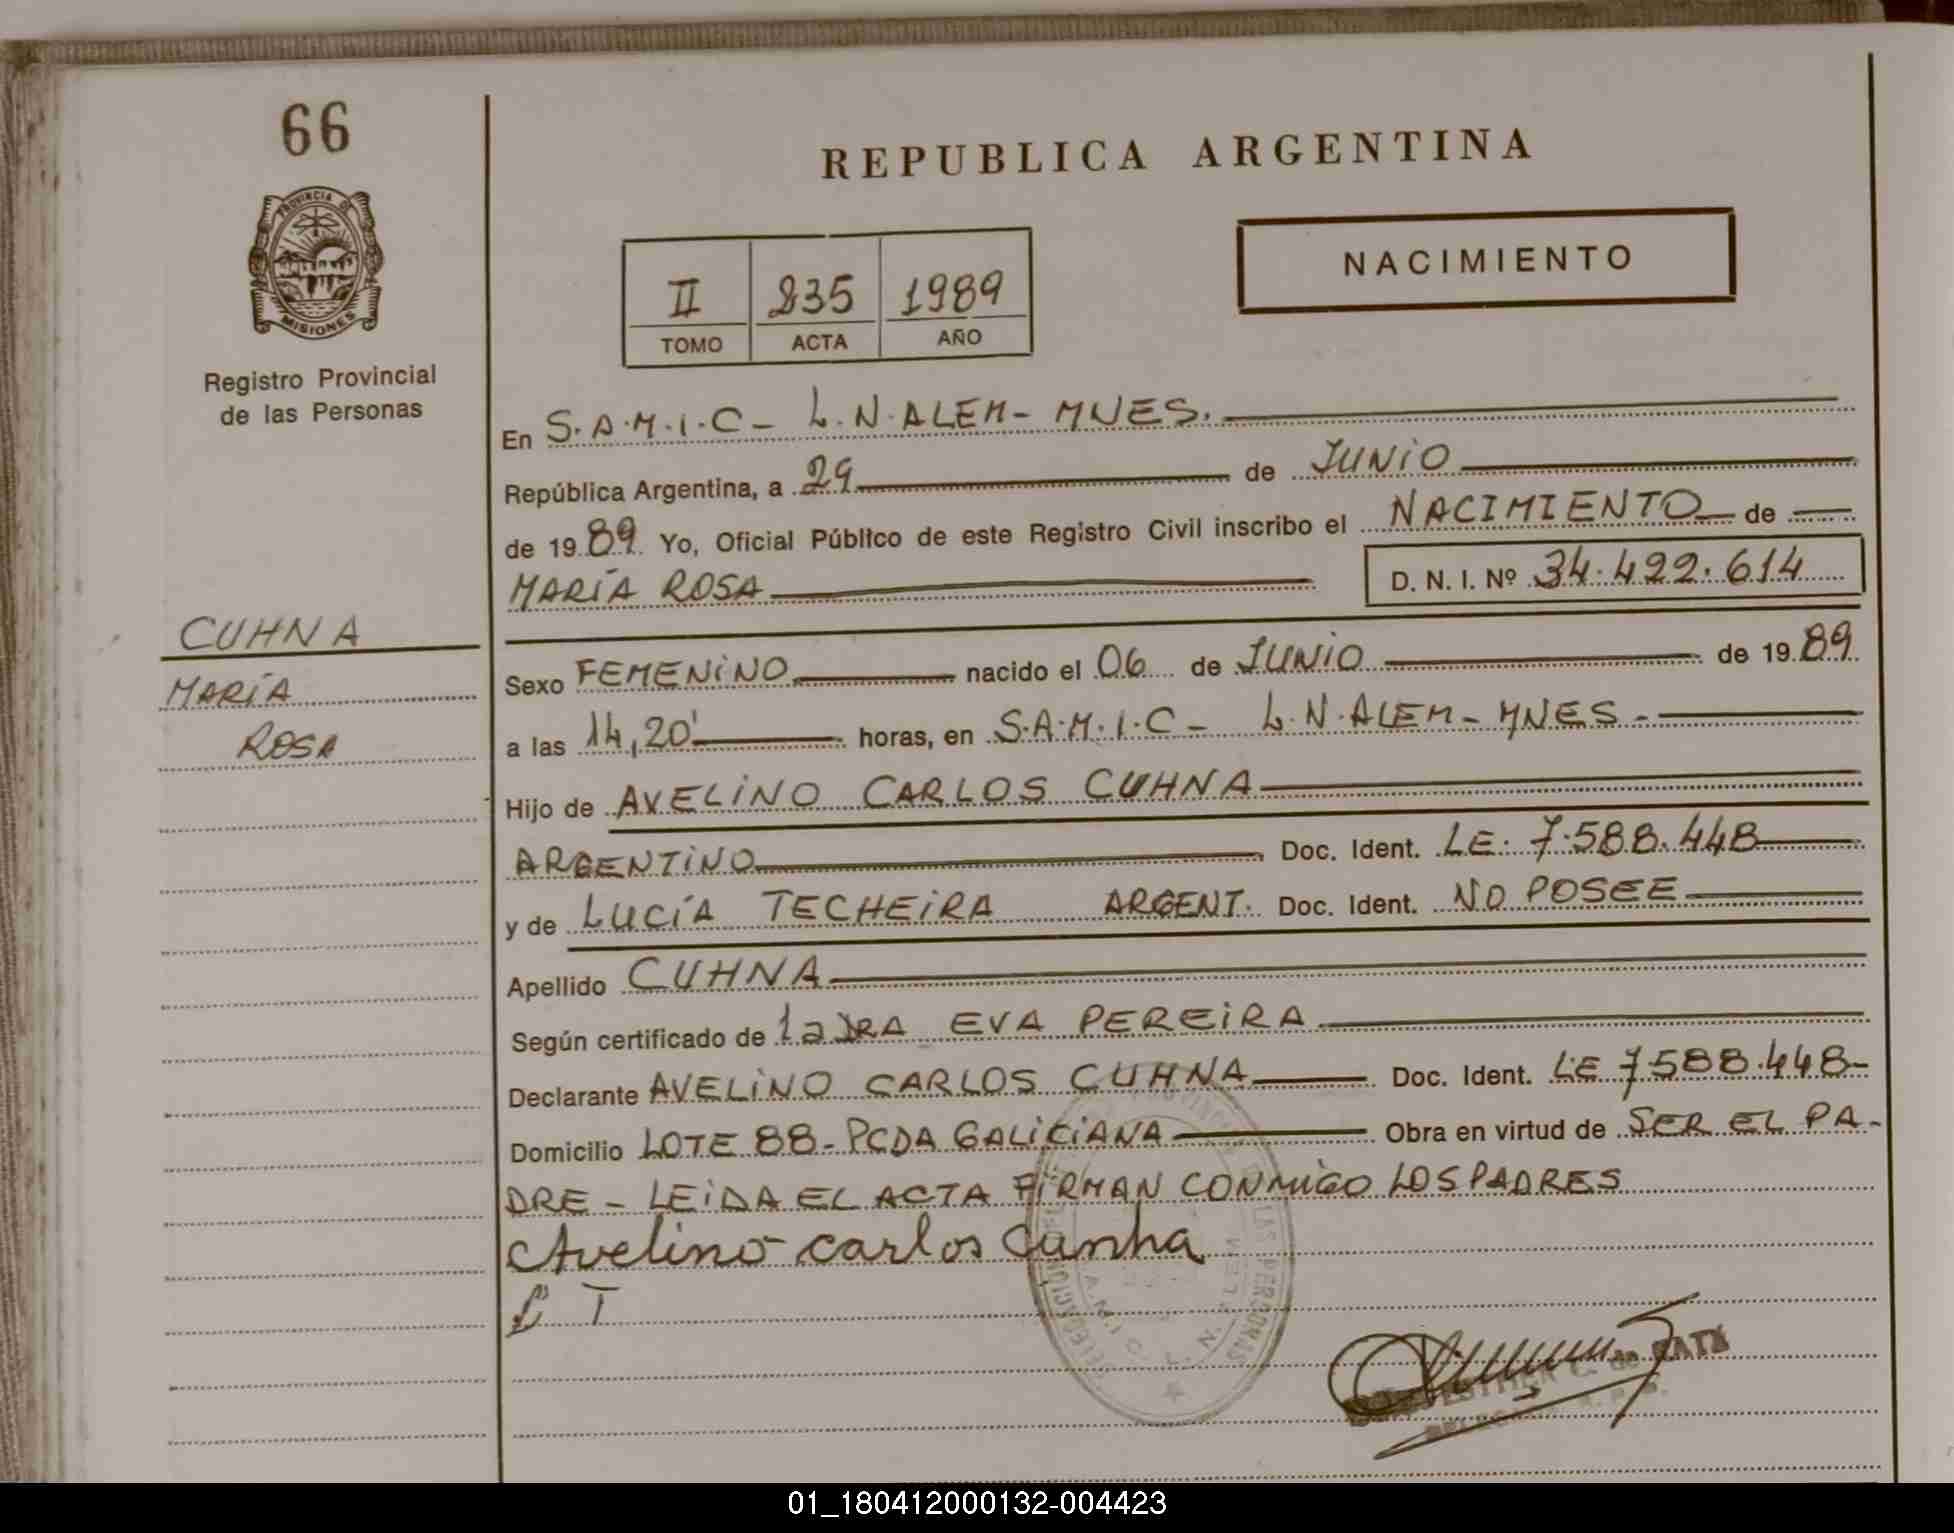 66
REPUBLICA ARGENTINA
PROVINCIA DE
MISIONES
Registro Provincial
de las Personas
II 235 1989
TOMO ACTA AÑO
NACIMIENTO
En S.A.M.I.C - L.N.ALEM - MNES.
República Argentina, a 29 de JUNIO
de 1989. Yo, Oficial Público de este Registro Civil inscribo el NACIMIENTO de
MARÍA ROSA D. N. I. Nº 34.422.614
CUHNA
MARÍA
ROSA
Sexo FEMENINO nacido el 06 de JUNIO de 1989
a las 14,20' horas, en S.A.M.I.C - L.N.ALEM - MNES -
Hijo de AVELINO CARLOS CUHNA
ARGENTINO Doc. Ident. LE. 7.588.448
y de LUCÍA TECHEIRA ARGENT. Doc. Ident. NO POSEE
Apellido CUHNA
Según certificado de la DRA EVA PEREIRA
Declarante AVELINO CARLOS CUHNA Doc. Ident. LE 7588.448-
Domicilio LOTE 88 - PCDA GALICIANA Obra en virtud de SER EL PA-
DRE - LEIDA EL ACTA FIRMAN CONMIGO LOS PADRES
Avelino carlos Cunha
L T
DELEGACION LAS PERSONAS
S.A.M.I.C. L. N. ALEM
C. de
01_180412000132-004423